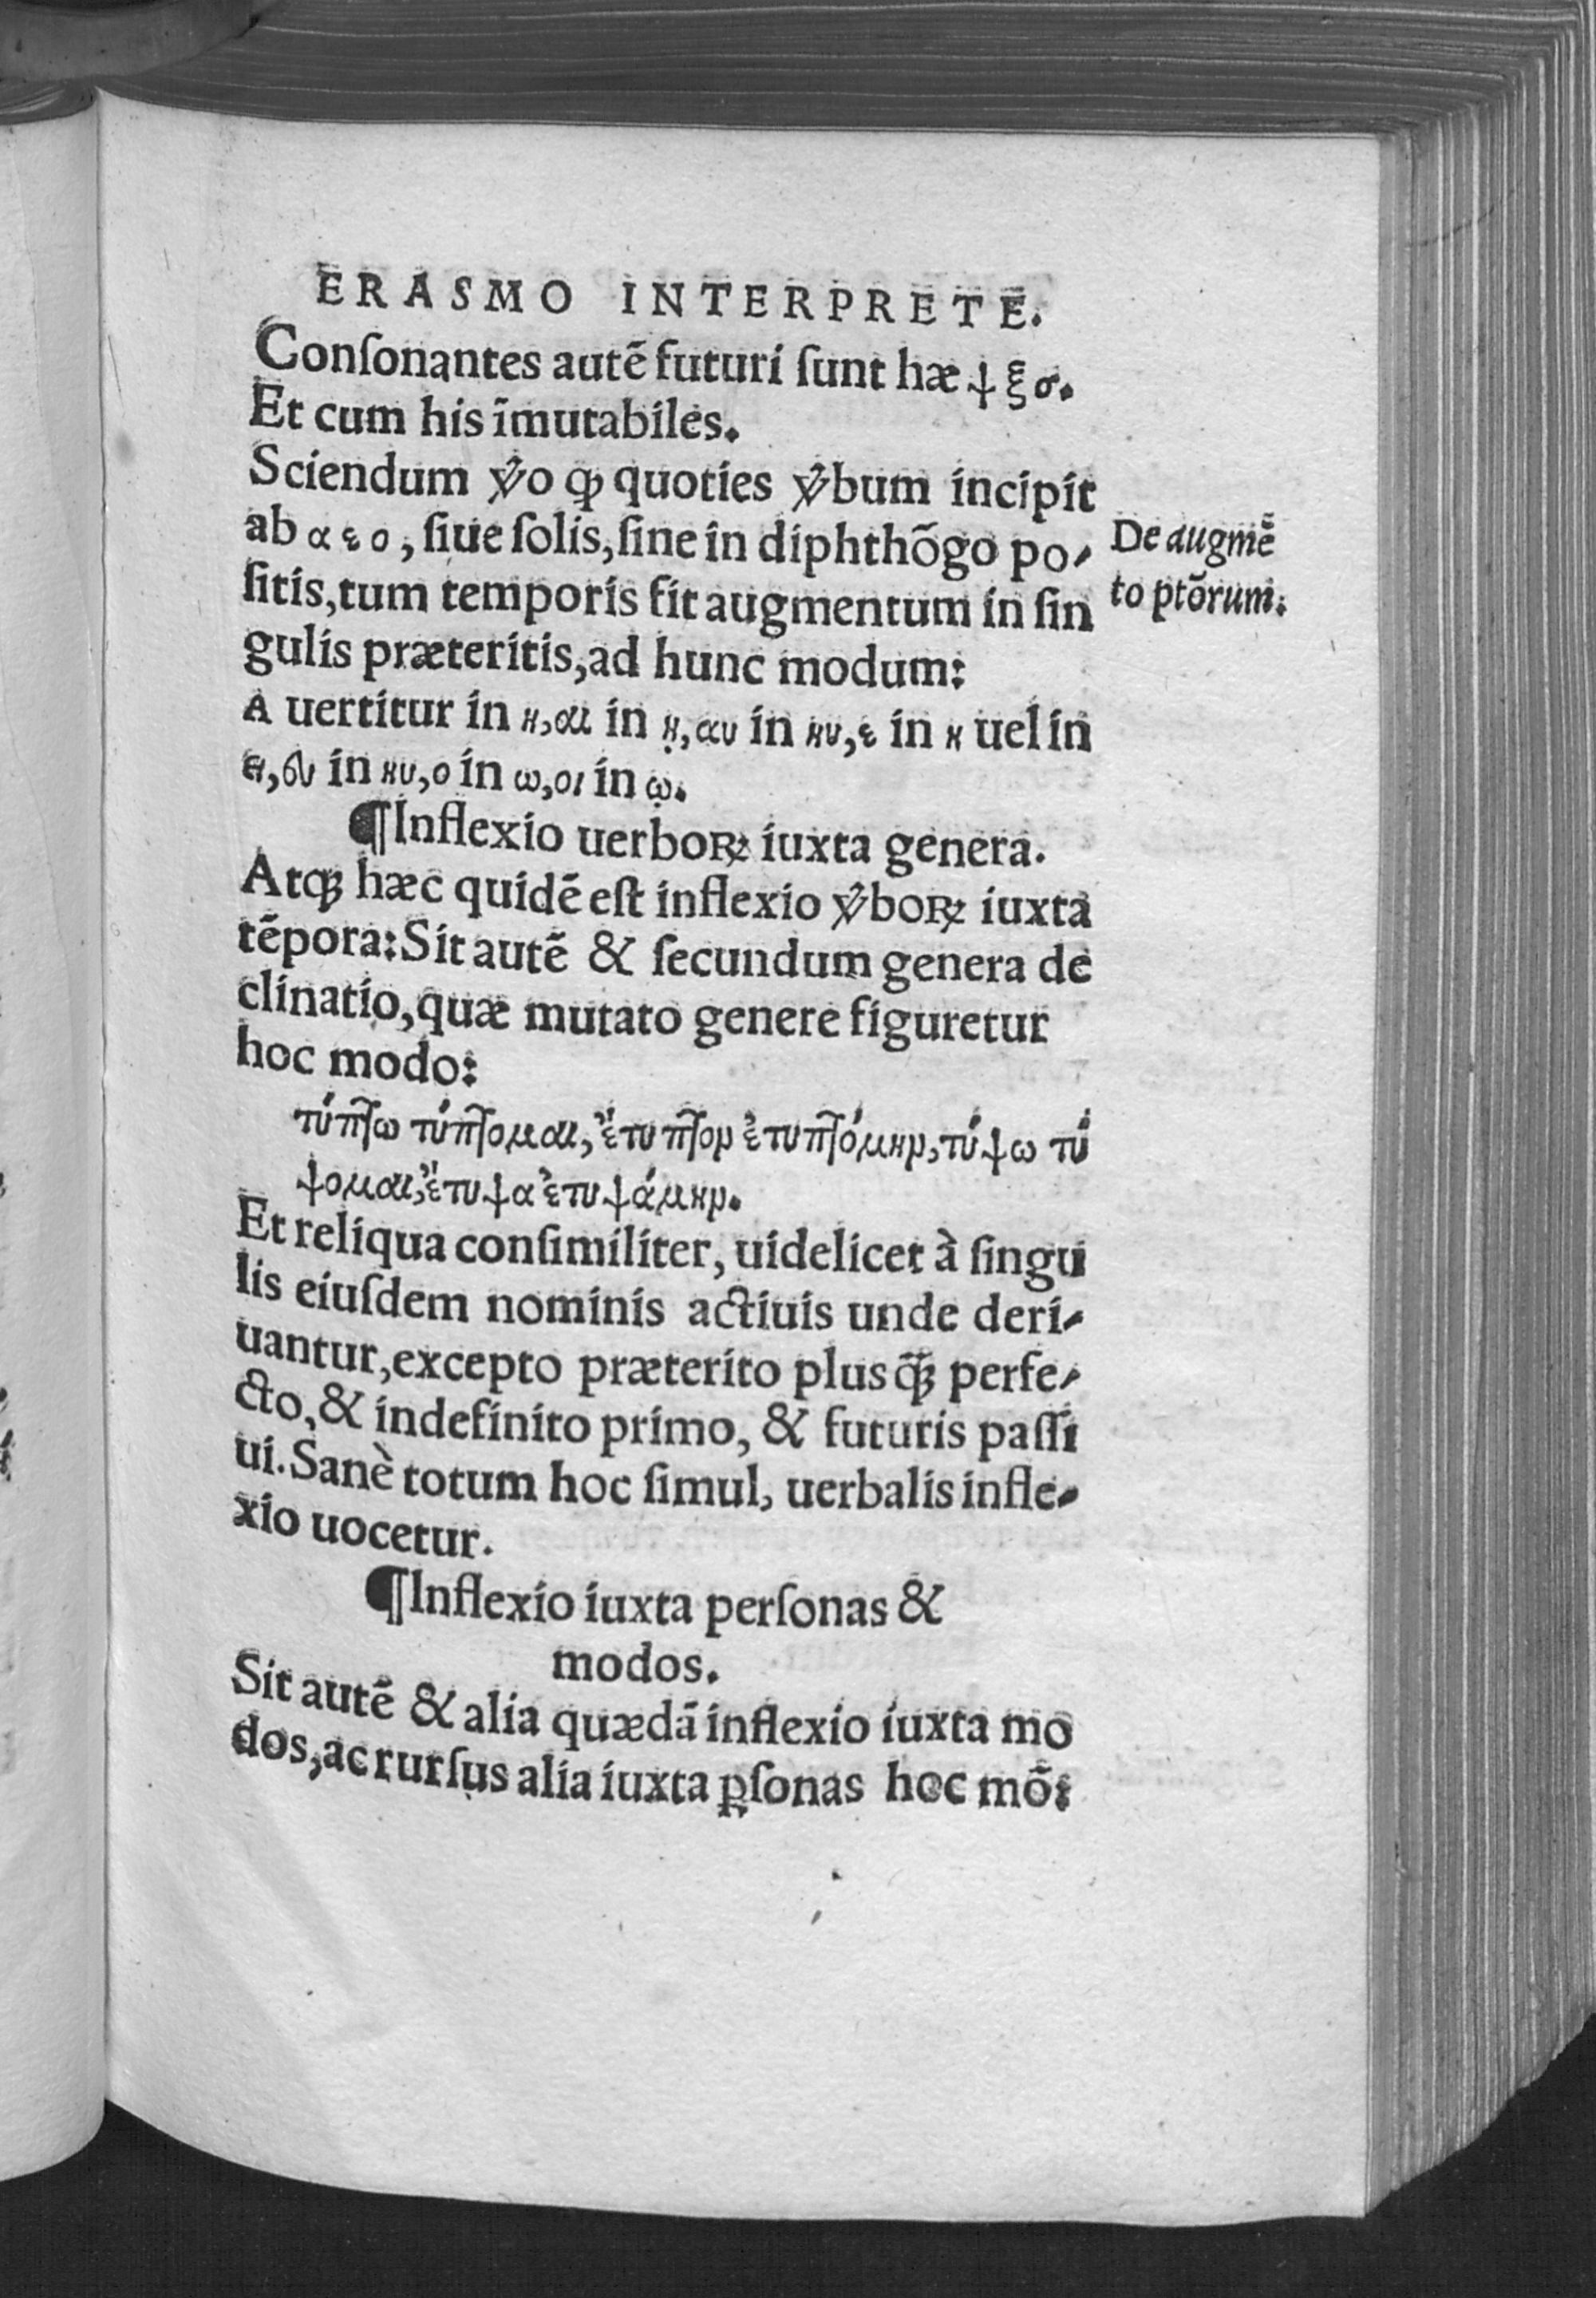 ERASMO INTERPRETE.
Conſonantes autē futuri ſunt hæ ψ ξ σ.
Et cum his īmutabiles.
Sciendum ꝟo ꝙ quoties ꝟbum incipit
ab α ε ο, ſiue ſolis, ſine in diphthōgo po-
ſitis, tum temporis fit augmentum in ſin
gulis præteritis, ad hunc modum:
De augmē
to ptōrum.
A uertitur in η, αι in ῃ, αυ in ηυ, ε in η uel in
ει, ευ in ηυ, ο in ω, οι in ῳ.
¶Inflexio uerboꝝ iuxta genera.
Atqꝫ hæc quidē eſt inflexio ꝟboꝝ iuxta
tēpora: Sit autē & ſecundum genera de
clinatio, quæ mutato genere figuretur
hoc modo:
τύπτω τύπτομαι, ἔτυπτον ἐτυπτόμην, τύψω τύ
ψομαι, ἔτυψα ἐτυψάμην.
Et reliqua conſimiliter, uidelicet à ſingu
lis eiuſdem nominis actiuis unde deri-
uantur, excepto præterito plus q̄ꝫ perfe-
cto, & indefinito primo, & futuris paſſi
ui. Sanè totum hoc ſimul, uerbalis infle-
xio uocetur.
¶Inflexio iuxta perſonas &
modos.
Sit autē & alia quædā inflexio iuxta mo
dos, ac rurſus alia iuxta ꝑſonas hoc mō: